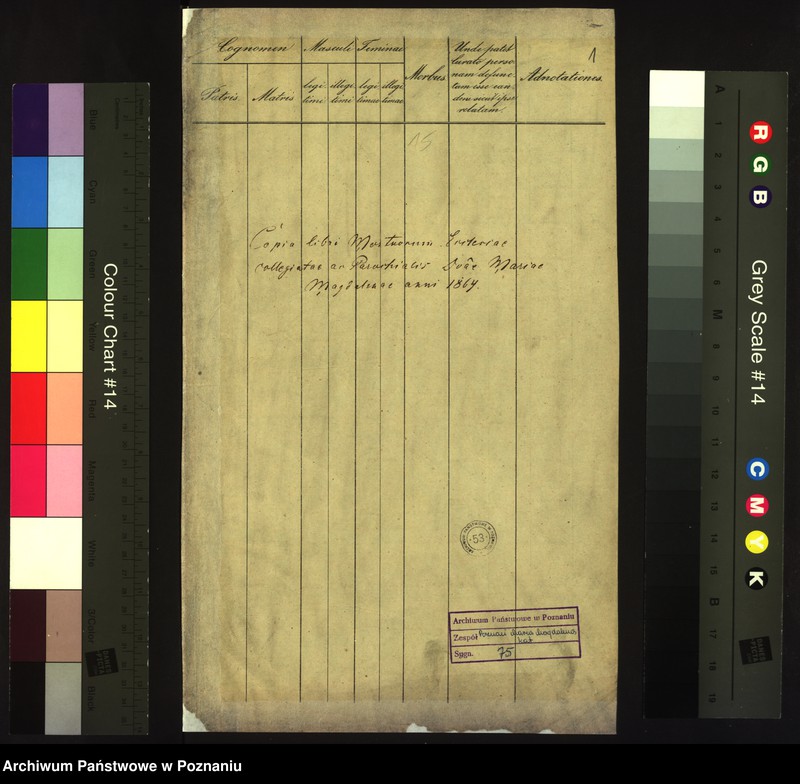 Cognomen
Masculi
Feminae
Morbus
Unde patet
curato perso
nam defunc
tam esse ean
dem
relatam.
Adnotationes
1
Patris
Matris
legi
timi
illegi
timi
legi
timae
illegi
timae
15
Copia libri Mortuorum Ecclesiae
collegiatae ac Parochialis Divae Mariae
Magdalenae anni 1864.
53
Archiwum Państwowe w Poznaniu
Zespół Poznań Maria Magdalena
kat
Sygn. 75
Blue
Cyan
Green
Yellow
Red
Magenta
White
3/Color
Black
Colour Chart #14
Grey Scale #14
R
G
B
C
M
Y
K
A
1
2
3
4
5
6
M
8
9
10
11
12
13
14
15
B
17
18
19
DANES
PICTA
Archiwum Państwowe w Poznaniu